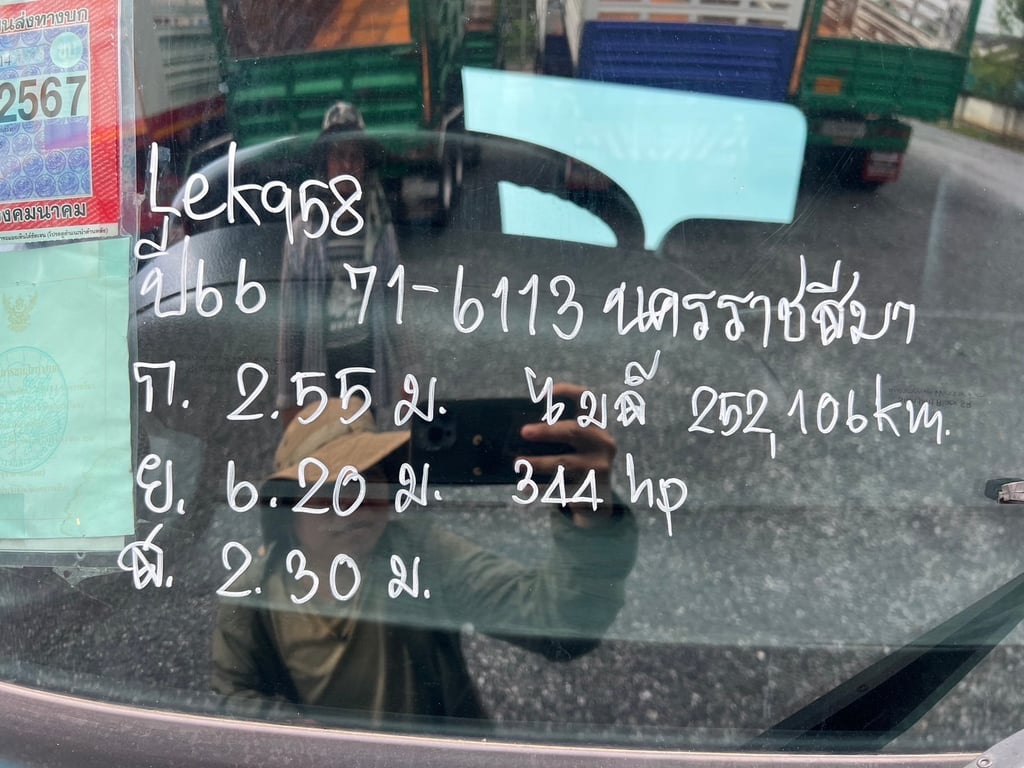 นส่งทางบก
2567
งคมนาคม
Lek958
ปี66 71-6113 นครราชสีมา
ก. 2.55 ม. ไมล์ 252,106km.
ย. 6.20 ม. 344 hp
ส. 2.30 ม.